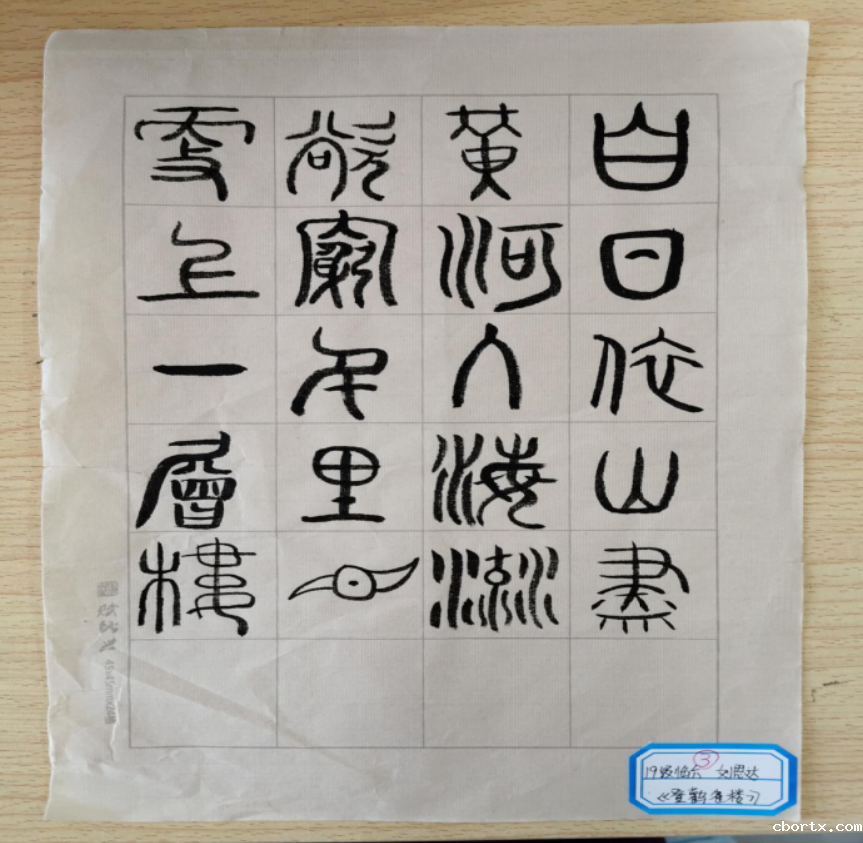 白日依山盡
黃河入海流
欲窮千里目
更上一層樓
③
19级临六
《登鹳雀楼》
cbortx.com